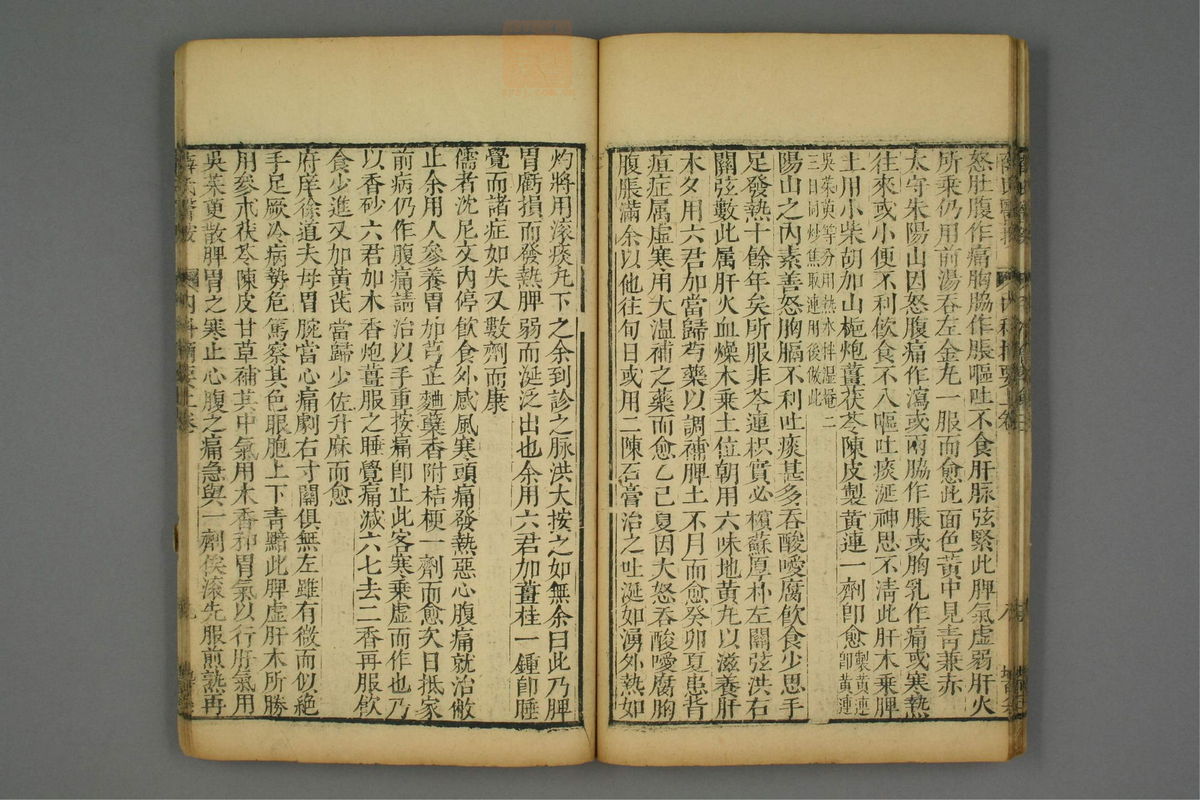 怒肚腹作痛胸脇作脹嘔吐不食肝脉弦緊此脾氣虛弱肝火
所乘仍用前湯吞左金丸一服而愈此面色黃中見靑兼赤
太守朱陽山因怒腹痛作瀉或兩脇作脹或胸乳作痛或寒熱
往來或小便不利飲食不入嘔吐痰涎神思不淸此肝木乘脾
土用小柴胡加山梔炮薑茯苓陳皮製黃連一劑卽愈製黃連卽黃連
吳茱萸等分用熱水拌濕罨二三日同炒焦取連用後倣此
陽山之內素善怒胸膈不利吐痰甚多吞酸噯腐飲食少思手
足發熱十餘年矣所服非芩連枳實必檳蘇厚朴左關弦洪右
關弦數此属肝火血燥木乘土位朝用六味地黃丸以滋養肝
木夕用六君加當歸芍藥以調補脾土不月而愈癸卯夏患背
疽症属虛寒用大温補之藥而愈乙巳夏因大怒吞酸噯腐胸
腹脹滿余以他往旬日或用二陳石膏治之吐涎如湧外熱如
灼將用滾痰丸下之余到診之脉洪大按之如無余曰此乃脾
胃虧損而發熱脾弱而涎泛出也余用六君加薑桂一鍾卽睡
覺而諸症如失又數劑而康
儒者沈尼文內停飲食外感風寒頭痛發熱惡心腹痛就治敝
止余用人參養胃加芎芷麯蘗香附桔梗一劑而愈次日抵家
前病仍作腹痛請治以手重按痛卽止此客寒乘虛而作也乃
以香砂六君加木香炮薑服之睡覺痛減六七去二香再服飲
食少進又加黃芪當歸少佐升麻而愈
府庠徐道夫母胃脘當心痛劇右寸關俱無左雖有微而似絶
手足厥冷病勢危篤察其色眼胞上下靑黯此脾虛肝木所勝
用參朮茯苓陳皮甘草補其中氣用木香和胃氣以行肝氣用
吳茱萸散脾胃之寒止心腹之痛急與一劑俟滾先服煎熟再